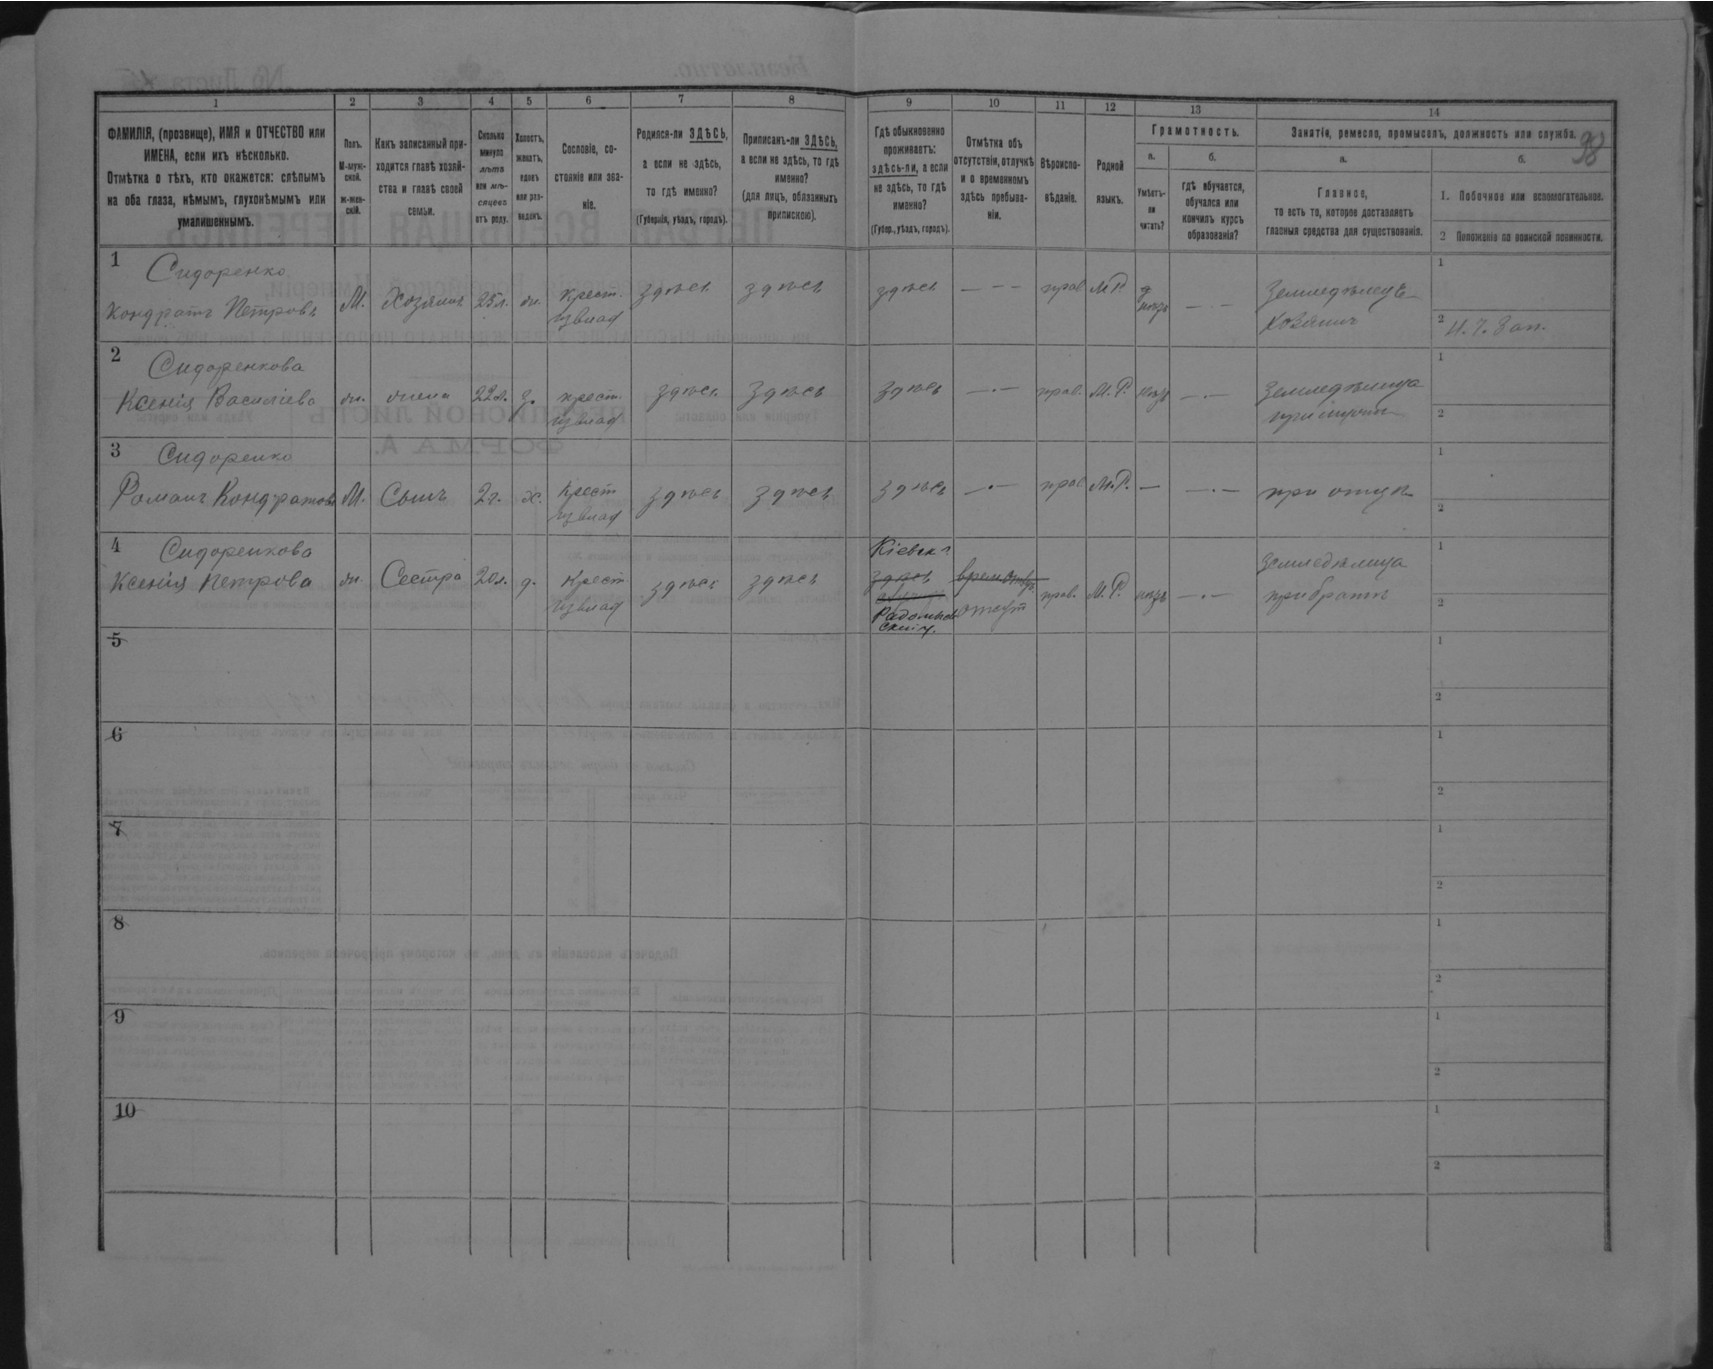 1 2 3 4 5 6 7 8 9 10 11 12 13 14
ФАМИЛІЯ, (прозвище), ИМЯ и ОТЧЕСТВО или
ИМЕНА, если ихъ нѣсколько.
Отмѣтка о тѣхъ, кто окажется: слѣпымъ
на оба глаза, нѣмымъ, глухонѣмымъ или
умалишеннымъ.
Полъ.
М-муж-
ской.
ж-жен-
скій.
Какъ записанный при-
ходится главѣ хозяй-
ства и главѣ своей
семьи.
Сколько
минуло
лѣтъ
или мѣ-
сяцевъ
отъ роду.
Холостъ,
женатъ,
вдовъ
или раз-
веденъ.
Сословіе, со-
стояніе или зва-
ніе.
Родился-ли ЗДѢСЬ,
а если не здѣсь,
то гдѣ именно?
(Губернія, уѣздъ, городъ).
Приписанъ-ли ЗДѢСЬ,
а если не здѣсь, то гдѣ
именно?
(для лицъ, обязанныхъ
припискою).
Гдѣ обыкновенно
проживаетъ:
здѣсь-ли, а если
не здѣсь, то гдѣ
именно?
(Губер., уѣздъ, городъ).
Отмѣтка объ
отсутствіи, отлучкѣ
и о временномъ
здѣсь пребыва-
ніи.
Вѣроиспо-
вѣданіе.
Родной
языкъ.
Грамотность.
а.
Умѣетъ-
ли
читать?
б.
гдѣ обучается,
обучался или
кончилъ курсъ
образованія?
Занятіе, ремесло, промыселъ, должность или служба.
98
а.
Главное,
то есть то, которое доставляетъ
главныя средства для существованія.
б.
1. Побочное или вспомогательное.
2 Положеніе по воинской повинности.
1 Сидоренко
Кондратъ Петровъ М. Хозяинъ 25л. жн. крест. здѣсь здѣсь здѣсь — — — прав М.Р. Земледѣлецъ—
изъ влад Хозяинъ
1
2 И. Г. Зап.
2 Сидоренкова
Ксенія Василіева жн. жена 22л. з. крест. здѣсь здѣсь здѣсь —·— прав. М.Р. —·— Земледѣлица
изъ влад
1
2
3 Сидоренко
Романъ Кондратовъ М. Сынъ 2г. х. крест здѣсь здѣсь здѣсь —·— прав М.Р. — —·— при отцѣ
изъ влад
1
2
4 Сидоренкова
Ксенія Петрова жн. Сестра 20л. д. крест здѣсь здѣсь
изъ влад
Кіевск г
здѣсь
Радомысль
скій у.
отсут
прав. М.Р. —·—
Земледѣлица
при братѣ
1
2
5
1
2
6
1
2
7
1
2
8
1
2
9
1
2
10
1
2